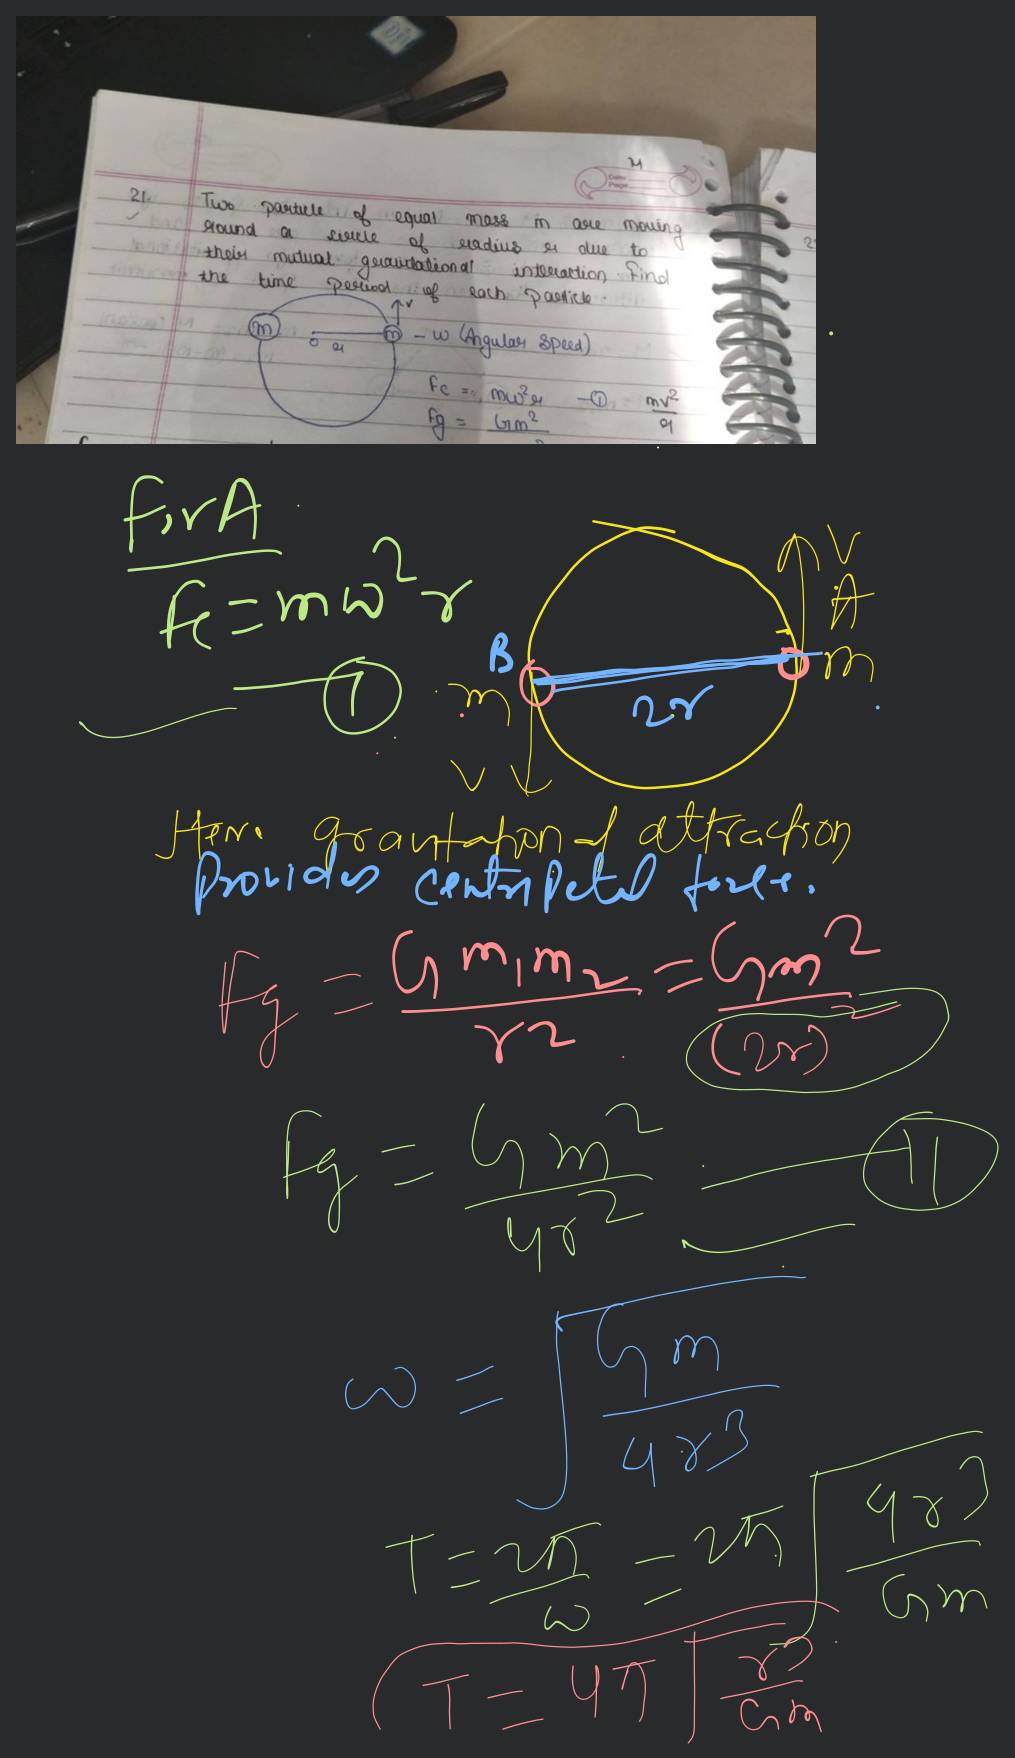 21. Two particle of equal mass m are moving
round a circle of radius r due to
their mutual gravitational interaction, Find
the time period of each particle.
m o r m v - ω (Angular Speed)
Fc = mω²r - ① mv²/r
Fg = Gm²
For A
Fc = mω²r
①
V
A
B
m 2r m
V
Here gravitational attraction
Provides centripetal force.
Fg = G m₁m₂/r² = Gm²/(2r)²
Fg = Gm²/4r² II
ω = √(Gm/4r³)
T = 2π/ω = 2π√(4r³/Gm)
T = 4π√(r³/Gm)